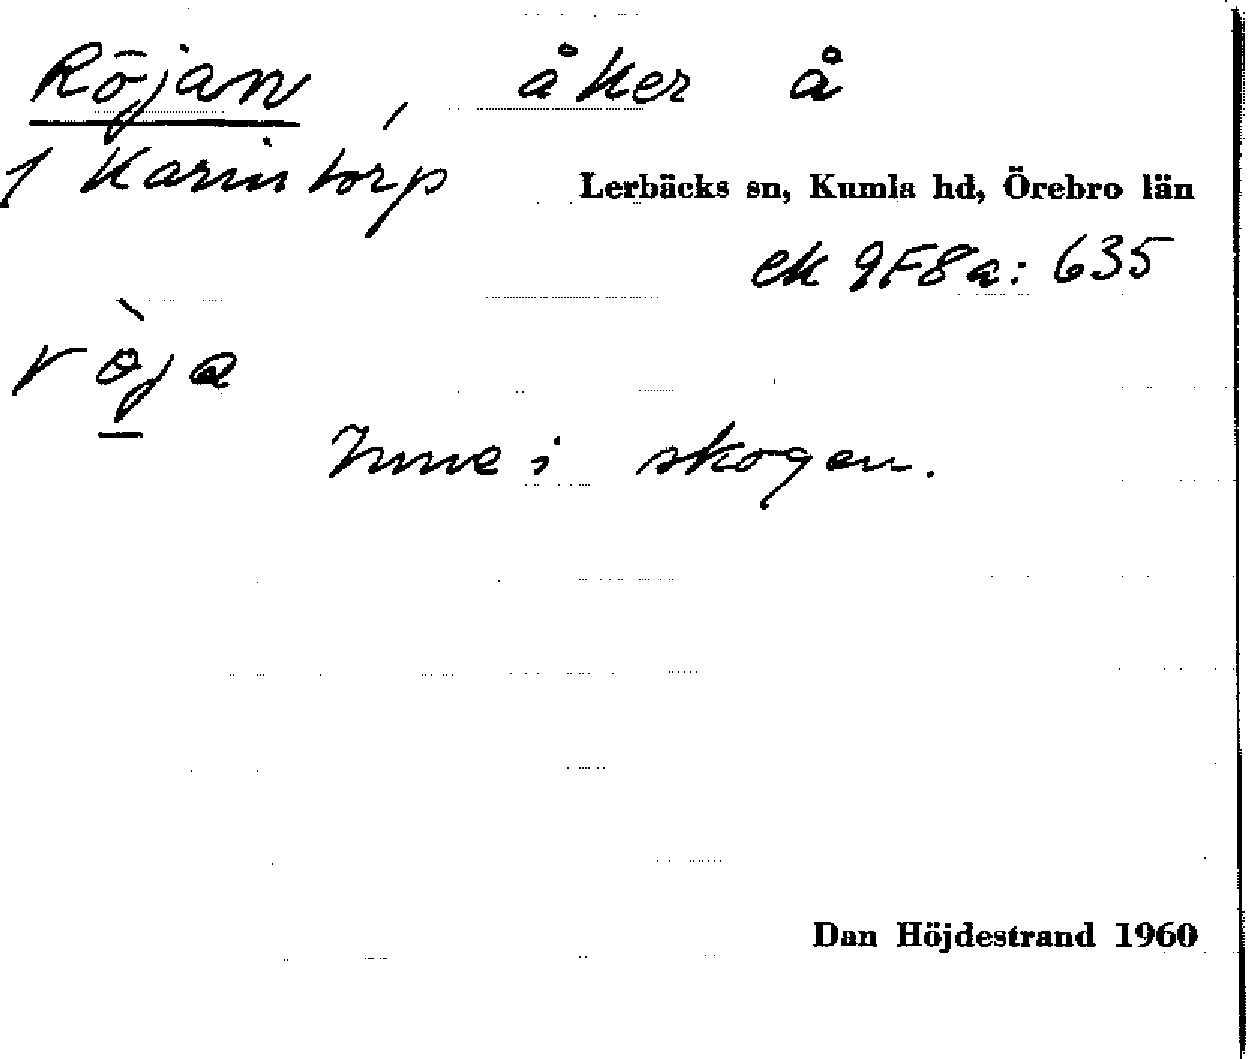 Röjan, åker å
1 Karintorp
Lerbäcks sn, Kumla hd, Örebro län
ek 9F8a: 635
rö̀ja
Inne i skogen.
Dan Höjdestrand 1960